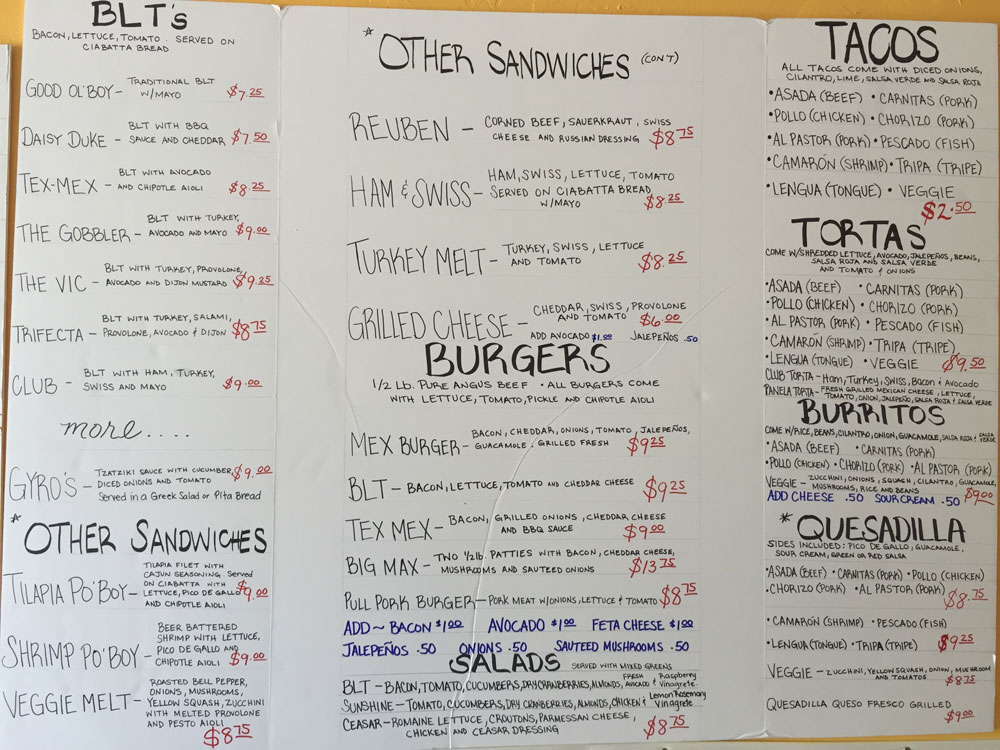 BLT's
BACON, LETTUCE, TOMATO. SERVED ON
CIABATTA BREAD
GOOD OL'BOY - TRADITIONAL BLT
W/MAYO $7.25
DAISY DUKE - BLT WITH BBQ
SAUCE AND CHEDDAR $7.50
TEX-MEX - BLT WITH AVOCADO
AND CHIPOTLE AIOLI $8.25
THE GOBBLER - BLT WITH TURKEY,
AVOCADO AND MAYO $9.00
THE VIC - BLT WITH TURKEY, PROVOLONE,
AVOCADO AND DIJON MUSTARD $9.25
TRIFECTA - BLT WITH TURKEY, SALAMI,
PROVOLONE, AVOCADO & DIJON $8.75
CLUB - BLT WITH HAM, TURKEY,
SWISS AND MAYO $9.00
more....
GYRO'S - TZATZIKI SAUCE WITH CUCUMBER,
DICED ONIONS AND TOMATO $9.00
Served in a Greek Salad or Pita Bread
* OTHER SANDWICHES
TILAPIA PO'BOY - TILAPIA FILET WITH
CAJUN SEASONING. Served
ON CIABATTA WITH
LETTUCE, PICO DE GALLO
AND CHIPOTLE AIOLI $9.00
SHRIMP PO'BOY - BEER BATTERED
SHRIMP WITH LETTUCE,
PICO DE GALLO AND
CHIPOTLE AIOLI $9.00
VEGGIE MELT - ROASTED BELL PEPPER,
ONIONS, MUSHROOMS,
YELLOW SQUASH, ZUCCHINI
WITH MELTED PROVOLONE
AND PESTO AIOLI
$8.75
* OTHER SANDWICHES (CON'T)
REUBEN - CORNED BEEF, SAUERKRAUT, SWISS
CHEESE AND RUSSIAN DRESSING $8.75
HAM & SWISS - HAM, SWISS, LETTUCE, TOMATO
SERVED ON CIABATTA BREAD
W/MAYO $8.25
TURKEY MELT - TURKEY, SWISS, LETTUCE
AND TOMATO $8.25
GRILLED CHEESE - CHEDDAR, SWISS, PROVOLONE
AND TOMATO $6.00
ADD AVOCADO $1.00 JALEPEÑOS .50
BURGERS
1/2 LB. PURE ANGUS BEEF • ALL BURGERS COME
WITH LETTUCE, TOMATO, PICKLE AND CHIPOTLE AIOLI
MEX BURGER - BACON, CHEDDAR, ONIONS, TOMATO, JALEPEÑOS,
GUACAMOLE, GRILLED FRESH $9.25
BLT - BACON, LETTUCE, TOMATO AND CHEDDAR CHEESE $9.25
TEX MEX - BACON, GRILLED ONIONS, CHEDDAR CHEESE
AND BBQ SAUCE $9.00
BIG MAX - TWO 1/2LB. PATTIES WITH BACON, CHEDDAR CHEESE,
MUSHROOMS AND SAUTEED ONIONS $13.75
PULL PORK BURGER - PORK MEAT W/ONIONS, LETTUCE & TOMATO $8.75
ADD ~ BACON $1.00 AVOCADO $1.00 FETA CHEESE $1.00
JALEPEÑOS .50 ONIONS .50 SAUTEED MUSHROOMS .50
SALADS SERVED WITH MIXED GREENS
BLT - BACON, TOMATO, CUCUMBERS, DRY CRANBERRIES, ALMONDS, FRESH AVOCADO & Raspberry Vinagrete
SUNSHINE - TOMATO, CUCUMBERS, DRY CRANBERRIES, ALMONDS, CHICKEN & Lemon Rosemary Vinagrete
CEASAR - ROMAINE LETTUCE, CROUTONS, PARMESSAN CHEESE,
CHICKEN AND CEASAR DRESSING $8.75
TACOS
ALL TACOS COME WITH DICED ONIONS,
CILANTRO, LIME, SALSA VERDE AND SALSA ROJA
• ASADA (BEEF) • CARNITAS (PORK)
• POLLO (CHICKEN) • CHORIZO (PORK)
AL PASTOR (PORK) • PESCADO (FISH)
• CAMARÓN (SHRIMP) • TRIPA (TRIPE)
• LENGUA (TONGUE) • VEGGIE
$2.50
TORTAS
COME W/SHREDDED LETTUCE, AVOCADO, JALEPEÑOS, BEANS,
SALSA ROJA AND SALSA VERDE
AND TOMATO & ONIONS
• ASADA (BEEF) • CARNITAS (PORK)
• POLLO (CHICKEN) • CHORIZO (PORK)
• AL PASTOR (PORK) • PESCADO (FISH)
• CAMARÓN (SHRIMP) • TRIPA (TRIPE)
• LENGUA (TONGUE) • VEGGIE $9.50
CLUB TORTA - Ham, Turkey, Swiss, Bacon & Avocado
PANELA TORTA - FRESH GRILLED MEXICAN CHEESE, LETTUCE,
TOMATO, ONION, JALEPEÑO, SALSA ROJA & SALSA VERDE
BURRITOS
COME W/RICE, BEANS, CILANTRO, ONION, GUACAMOLE, SALSA ROJA & SALSA VERDE
• ASADA (BEEF) • CARNITAS (PORK)
• POLLO (CHICKEN) • CHORIZO (PORK) • AL PASTOR (PORK)
VEGGIE - ZUCCHINI, ONIONS, SQUASH, CILANTRO, GUACAMOLE,
MUSHROOMS, RICE AND BEANS $9.00
ADD CHEESE .50 SOUR CREAM .50
* QUESADILLA
SIDES INCLUDED: PICO DE GALLO, GUACAMOLE,
SOUR CREAM, GREEN OR RED SALSA
• ASADA (BEEF) • CARNITAS (PORK) • POLLO (CHICKEN)
• CHORIZO (PORK) • AL PASTOR (PORK) $8.75
• CAMARÓN (SHRIMP) • PESCADO (FISH)
• LENGUA (TONGUE) • TRIPA (TRIPE) $9.25
VEGGIE - ZUCCHINI, YELLOW SQUASH, ONION, MUSHROOM
AND TOMATOS $8.75
QUESADILLA QUESO FRESCO GRILLED
$9.00